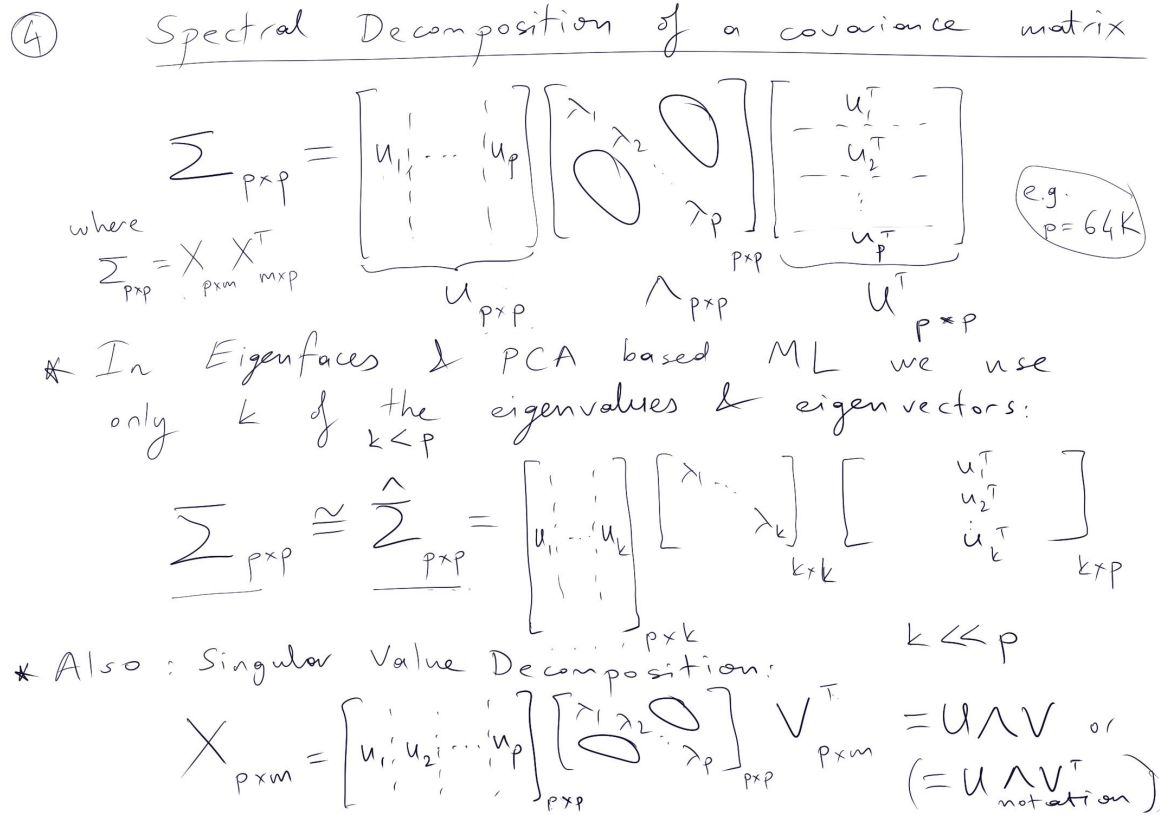 ④ Spectral Decomposition of a covariance matrix
Σ p×p = [u₁ ... u_p] [λ₁ λ₂ ... λ_p] p×p [u₁ᵀ u₂ᵀ ⋮ u_pᵀ]
e.g. p = 64K
where
Σ p×p = X p×m Xᵀ m×p
U p×p Λ p×p Uᵀ p×p
* In Eigenfaces & PCA based ML we use
only k of the eigenvalues & eigenvectors:
k<p
Σ p×p ≅ Σ̂ p×p = [u₁ ... u_k] p×k [λ₁ ... λ_k] k×k [u₁ᵀ u₂ᵀ ⋮ u_kᵀ] k×p
k << p
* Also : Singular Value Decomposition:
X p×m = [u₁ u₂ ... u_p] p×p [λ₁ λ₂ ... λ_p] p×p Vᵀ p×m = UΛV or
(= UΛVᵀ notation)